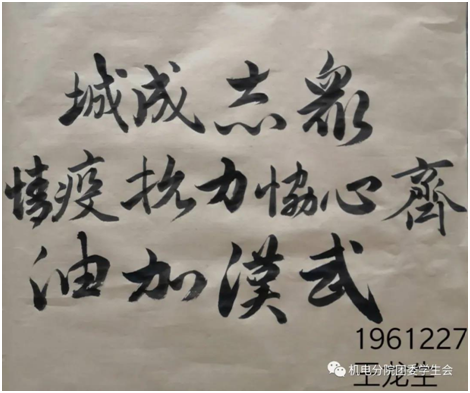 眾志成城
齊心恊力抗疫情
武漢加油
1961227
机电分院团委学生会
王龙生